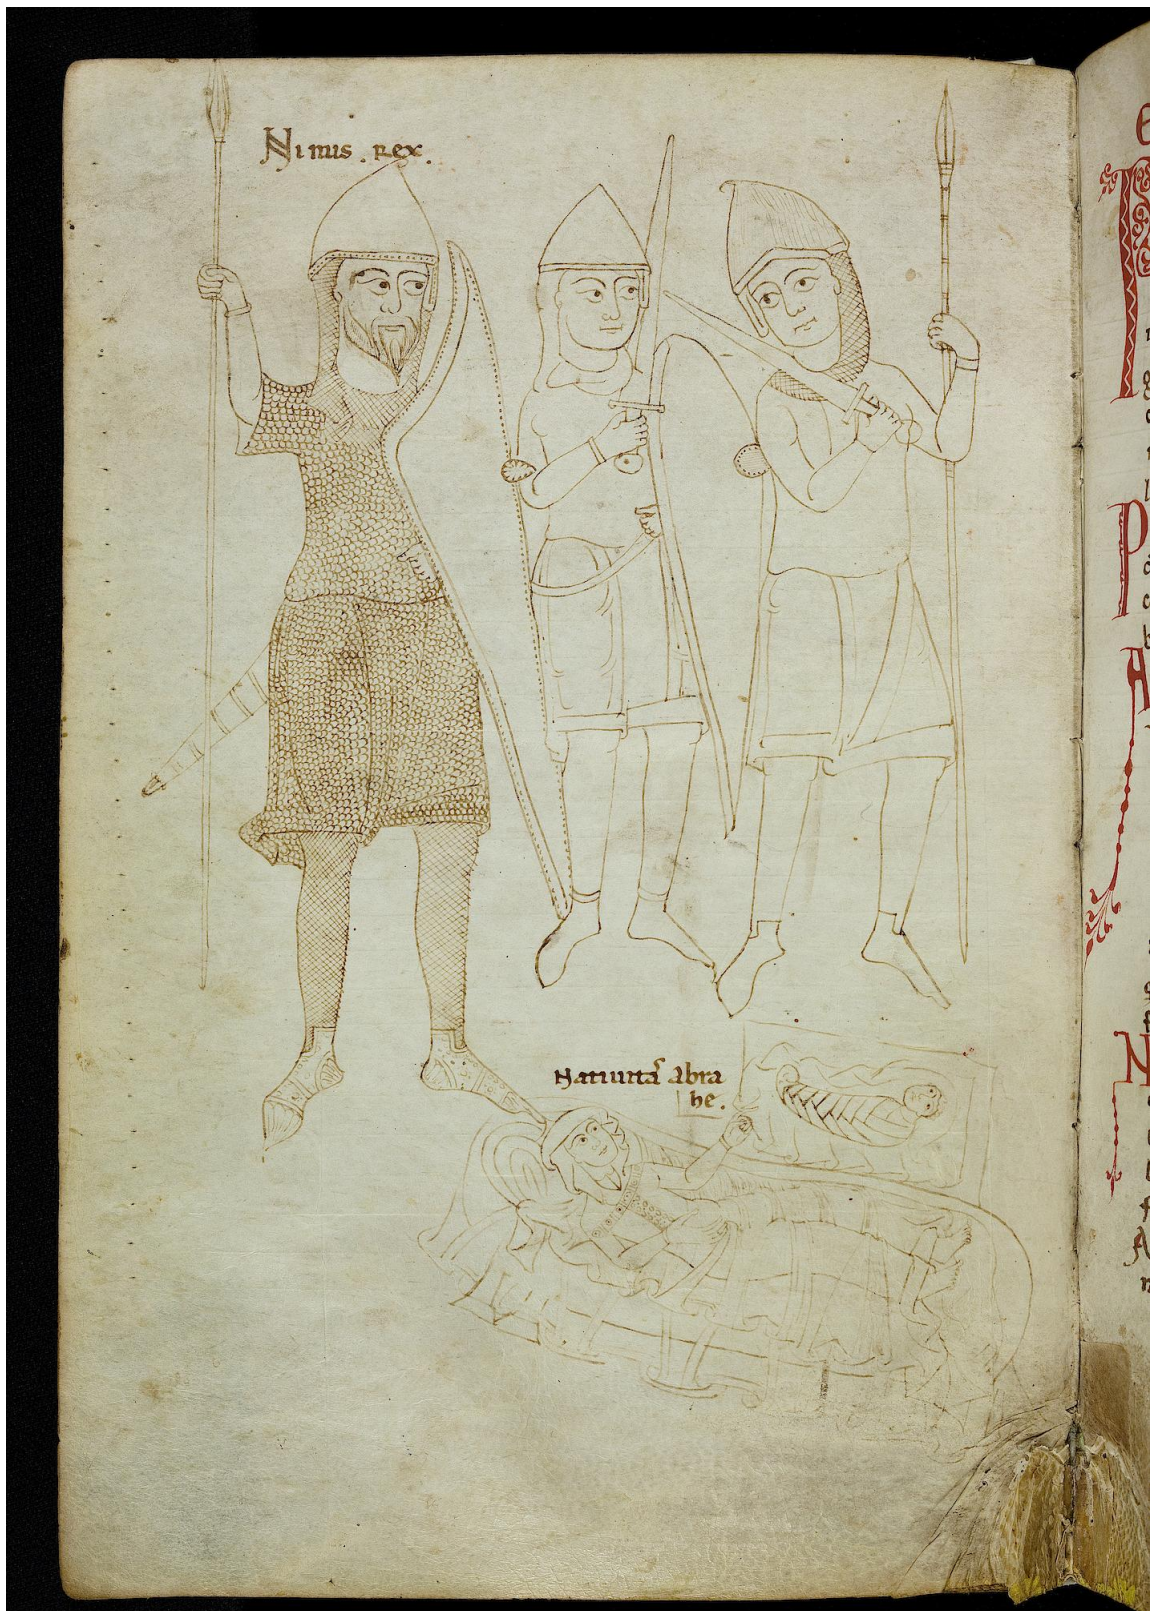 Ninus . rex .
Natiuitas abra
he .
E
P
A
N